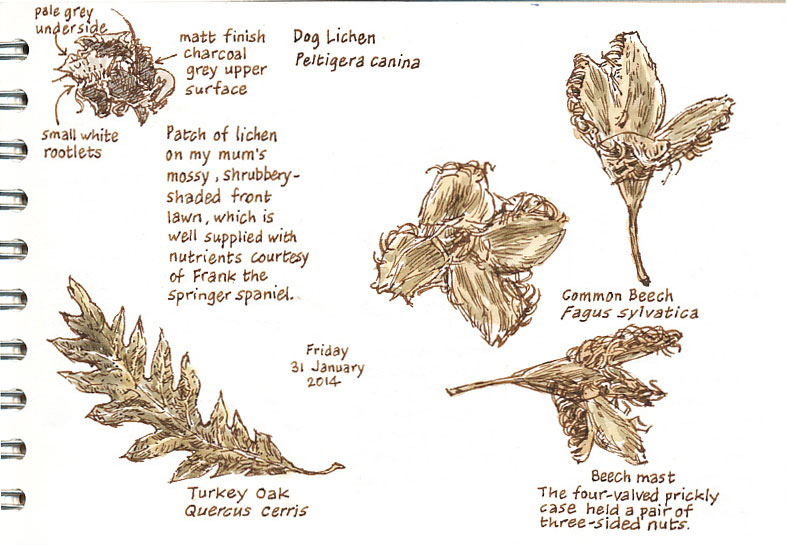 pale grey
underside
matt finish
charcoal
grey upper
surface
small white
rootlets
Dog Lichen
Peltigera canina
Patch of lichen
on my mum's
mossy, shrubbery-
shaded front
lawn, which is
well supplied with
nutrients courtesy
of Frank the
springer spaniel.
Friday
31 January
2014
Turkey Oak
Quercus cerris
Common Beech
Fagus sylvatica
Beech mast
The four-valved prickly
case held a pair of
three-sided nuts.